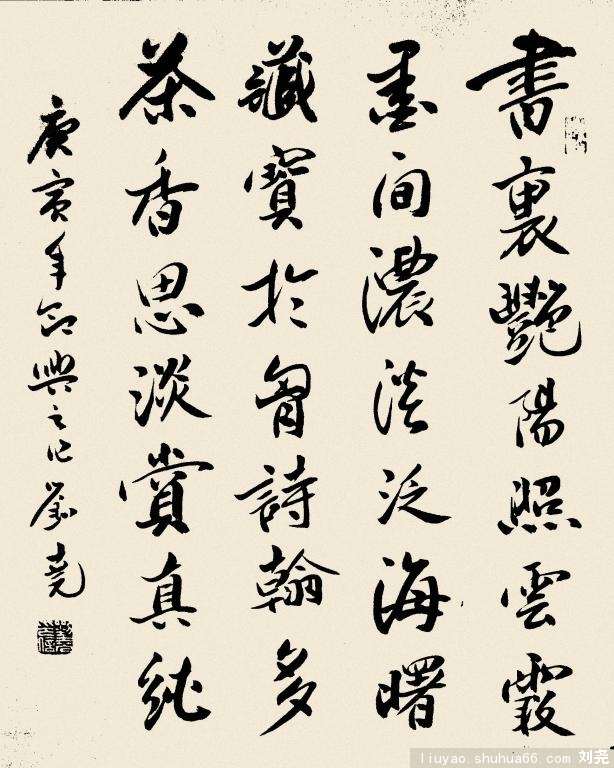 書裏艷陽照雲霞
墨间濃淡泛海曙
藏寶於胷詩翰多
茶香思淡賞真純
庚寅年即興之作劉堯
liuyao.shuhua66.com 刘尧